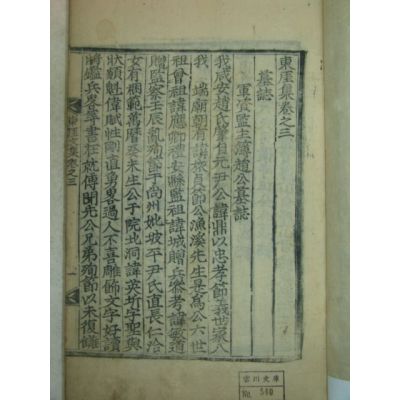 東厓集卷之三
墓誌
軍資監主簿趙公墓誌
我咸安趙氏肇自元尹公諱鼎以忠孝節義世家入
我 端廟朝有諱旅貞節公漁溪先生是爲公六世
祖曾祖諱應卿禮安縣監祖諱城贈兵參考諱敏道
贈監察壬辰亂殉節于尚州妣坡平尹氏直長仁洽
女有梱範萬曆癸未生公于院北洞諱英圻字聖興
狀貌魁偉賦性剛直勇畧過人不喜雕餙文字好讀
將鑑兵畧等書往就傳聞先公兄弟殉節以未復讎
東厓集卷之三
一
雲川文庫
No. 540